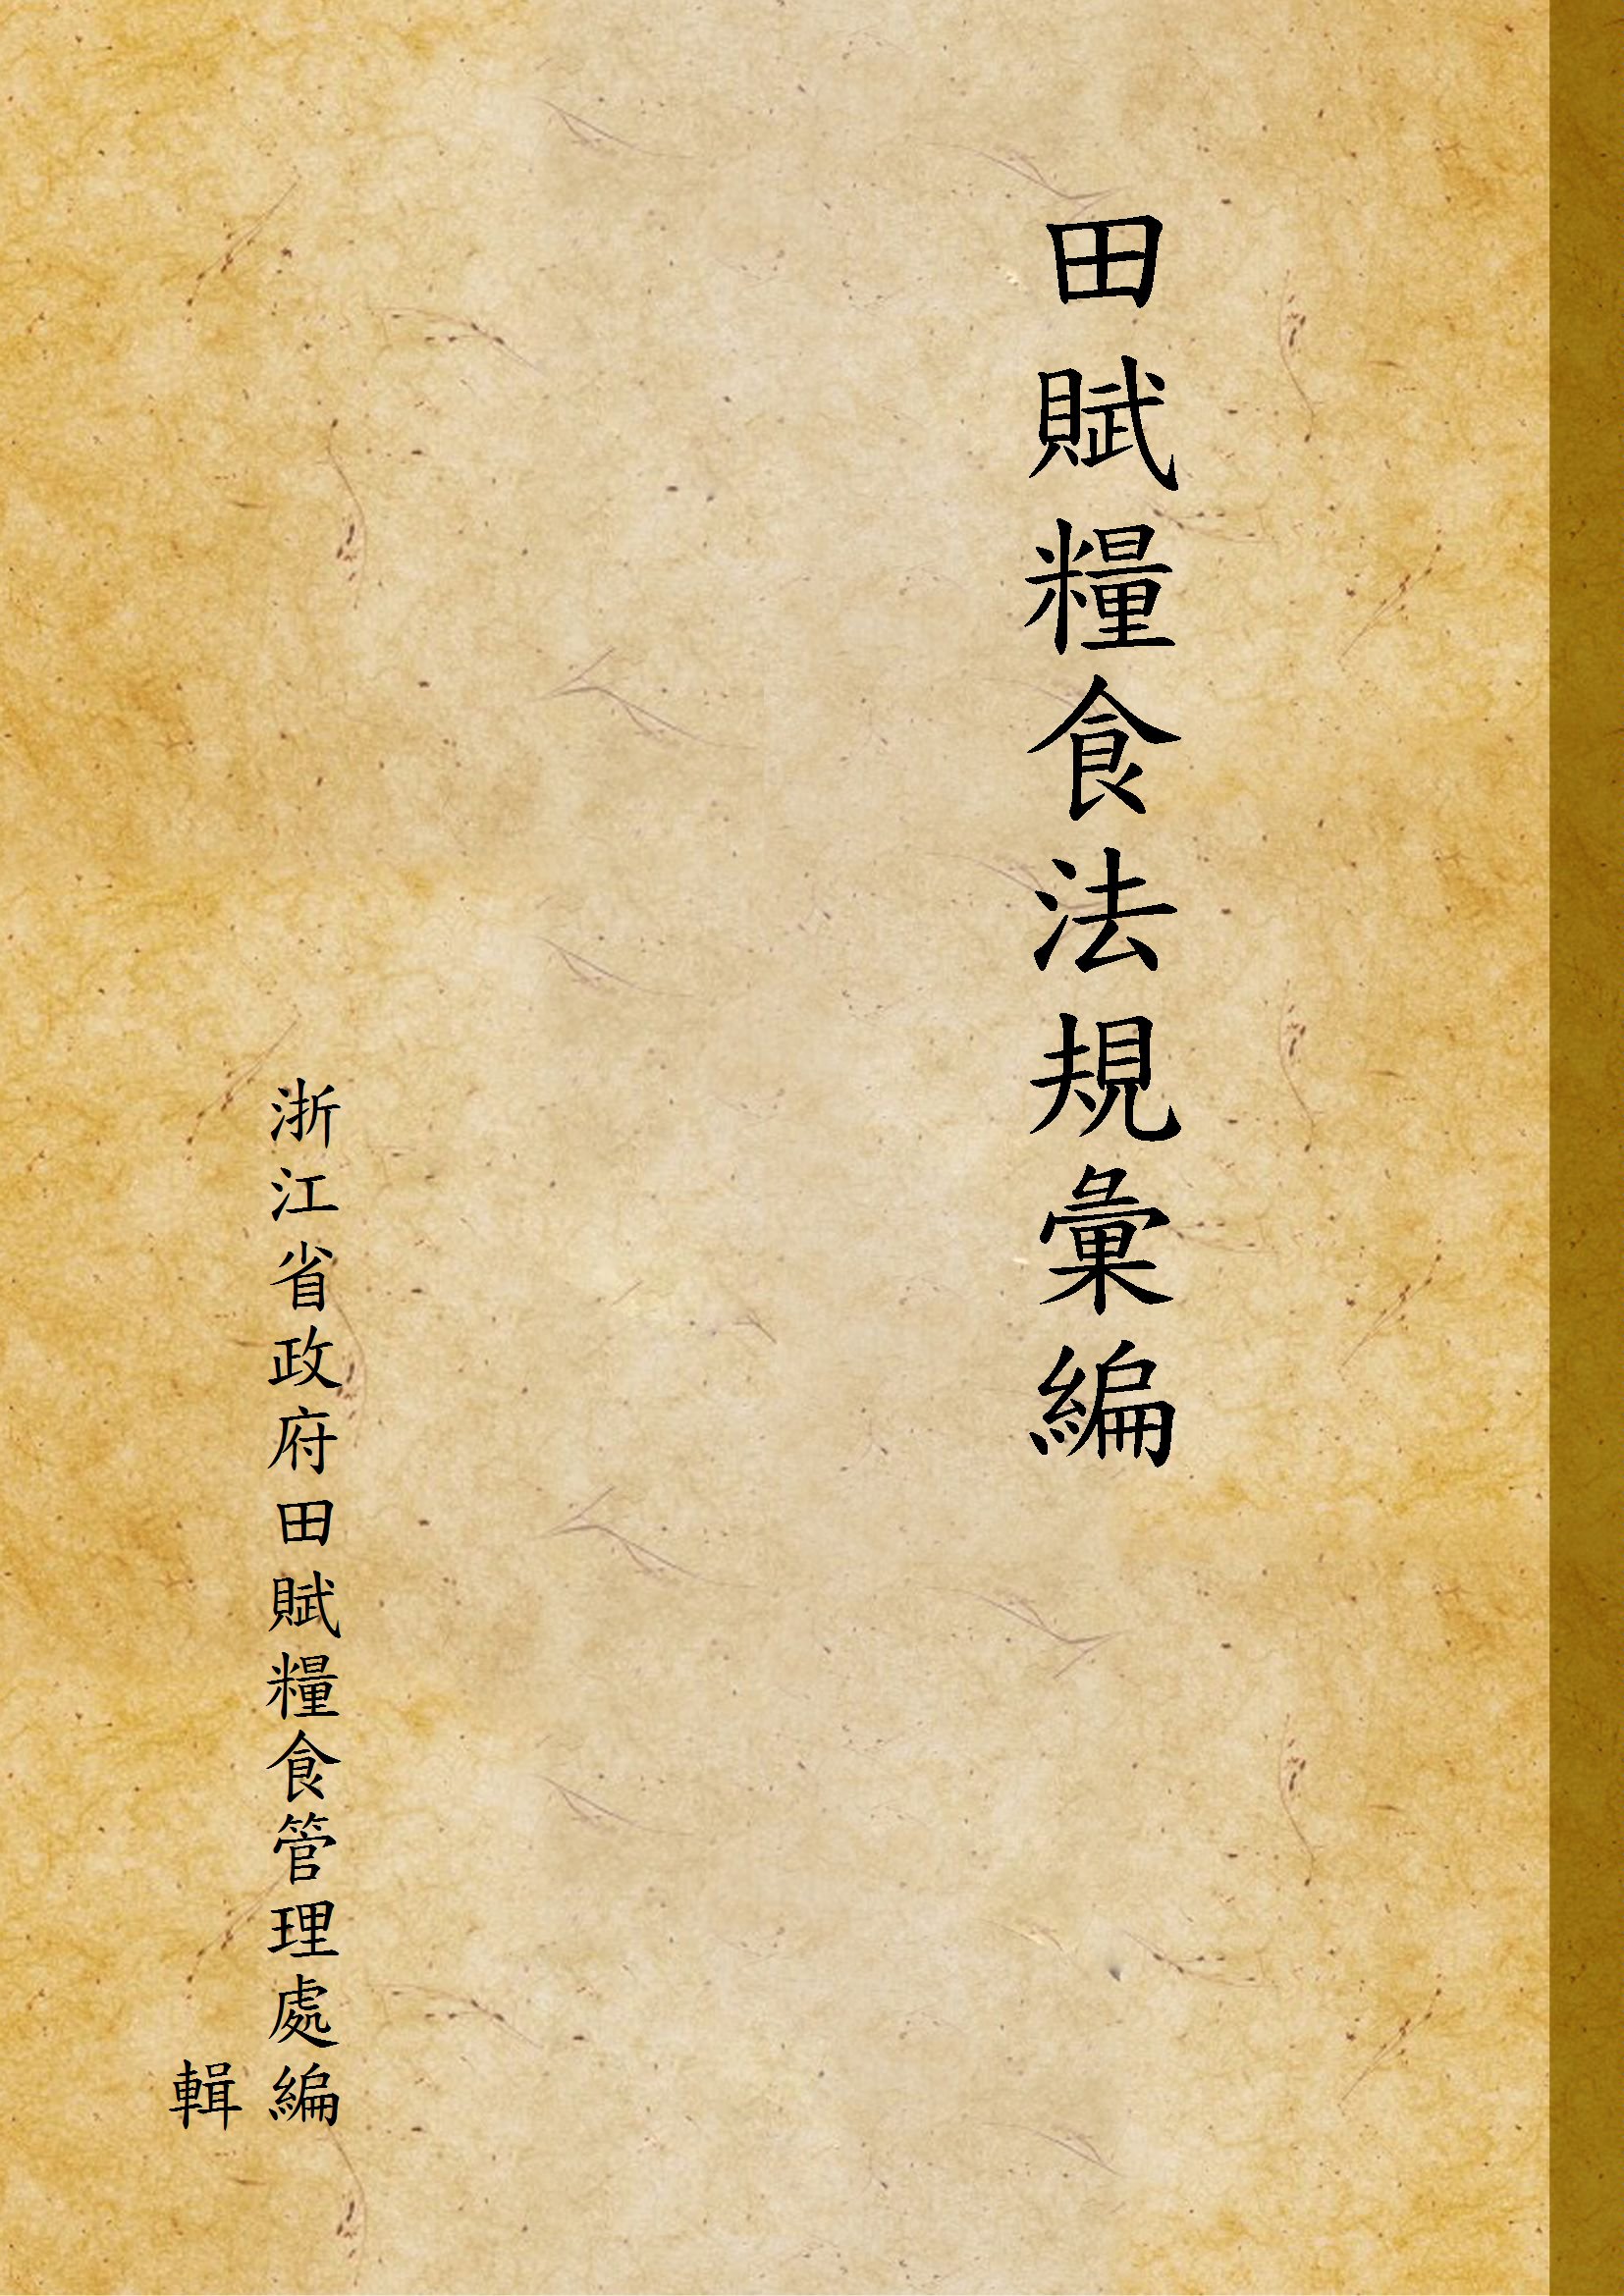 田賦糧食法規彙編
浙江省政府田賦糧食管理處編
輯